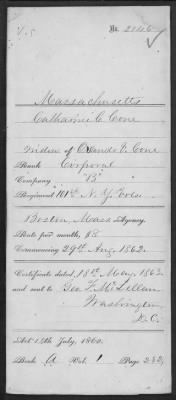 No. 2146
Massachusetts
Catharine C. Cone
Widow of Orando V. Cone
Rank Corporal
Company "B"
Regiment 101st N. Y. Vols.
Boston Mass Agency.
Rate per month, $8
Commencing 29th Aug. 1862.
Certificate dated, 18th May, 1863
and sent to Geo. F. McLellan
Washington
D.C.
Act 14th July, 1862.
Book A Vol. 1 Page 232